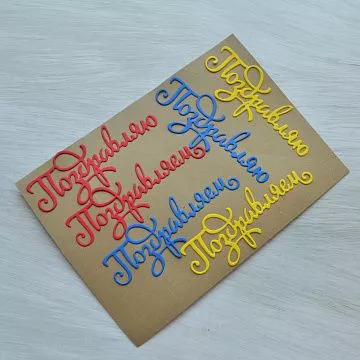 Поздравляю
Поздравляем
Поздравляю
Поздравляем
Поздравляю
Поздравляем